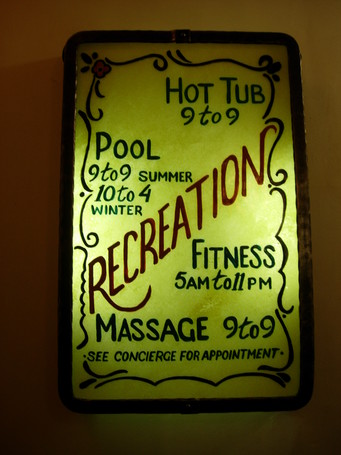 HOT TUB
9 to 9
POOL
9 to 9 SUMMER
10 to 4
WINTER
RECREATION
FITNESS
5AM to 11 PM
MASSAGE 9 to 9
·SEE CONCIERGE FOR APPOINTMENT·